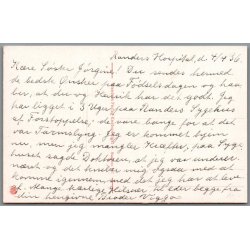 Randers Hospital, d. 7/9 36.
Kære Søster Jørgine! Du sendes hermed
de bedste Ønsker paa Fødselsdagen og haa-
ber, at du og Henrik har det godt. Jeg
har ligget i 3 Uger paa Randers Sygehus
af Forstoppelse; de vare bange for at det
var Tarmslyng. Jeg er kommet hjem
nu, men jeg mangler Kræfter, paa Syge-
huset sagde Doktoren, at jeg var underer-
næret og det hindrer mig ogsaa med at
komme igennem med det jeg har at leve
af. Mange kærlige Hilsener til eder begge fra
din hengivne Broder Viggo.